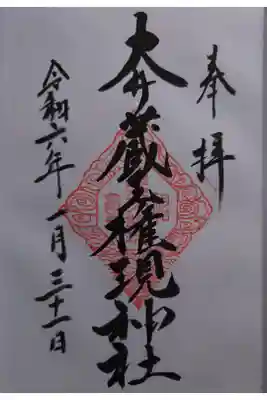 奉拝
大井蔵王権現神社
令和六年一月三十一日